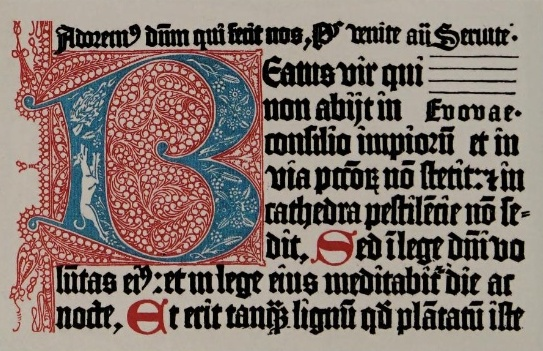 Adoremꝰ dn̄m qui fecit nos, Ps̄ venite an̄ Seruite·
Beatus vir qui
non abijt in Evovae·
consilio impiorū et in
via pctōꝝ nō stetit: ⁊ in
cathedra pestilēcie nō se=
dit, Sed ī lege dn̄i vo
lūtas eiꝰ: et in lege eius meditabit᷑ die ac
nocte, Et erit tanꝙ̄ lignū qd̄ plātatū iste